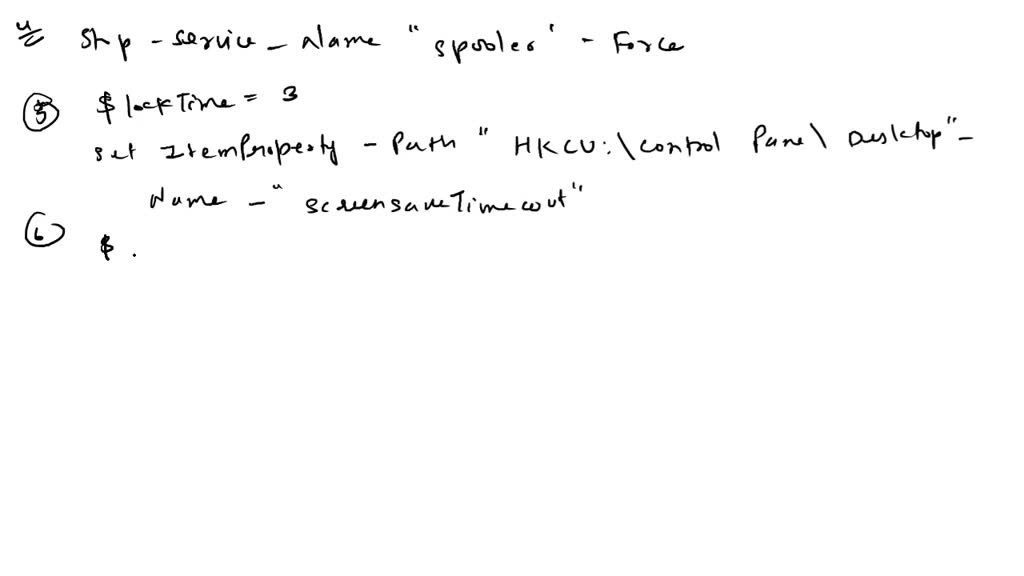 4 Stop - service - Name "spooler" - Force
5 $ lockTime = 3
set ItemProperty - Path "HKCU:\Control Panel\Desktop" -
Name - "ScreensaveTimeout"
6 $ .